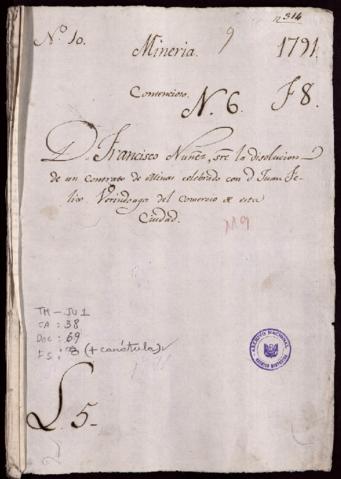 2314
Nº 10. Mineria. 9 1791
Contencioso.
N. 6. F 8.
D. Francisco Nuñez, sre la disolucion
de un Contrato de Minas celebrado con d Juan Fe-
lix Verindoaga del Comercio de esta
Ciudad.
M9
TM-JU 1
CA: 38
DOC: 69
FS: 8 (+ carátula)
ARCHIVO NACIONAL
L. 5-